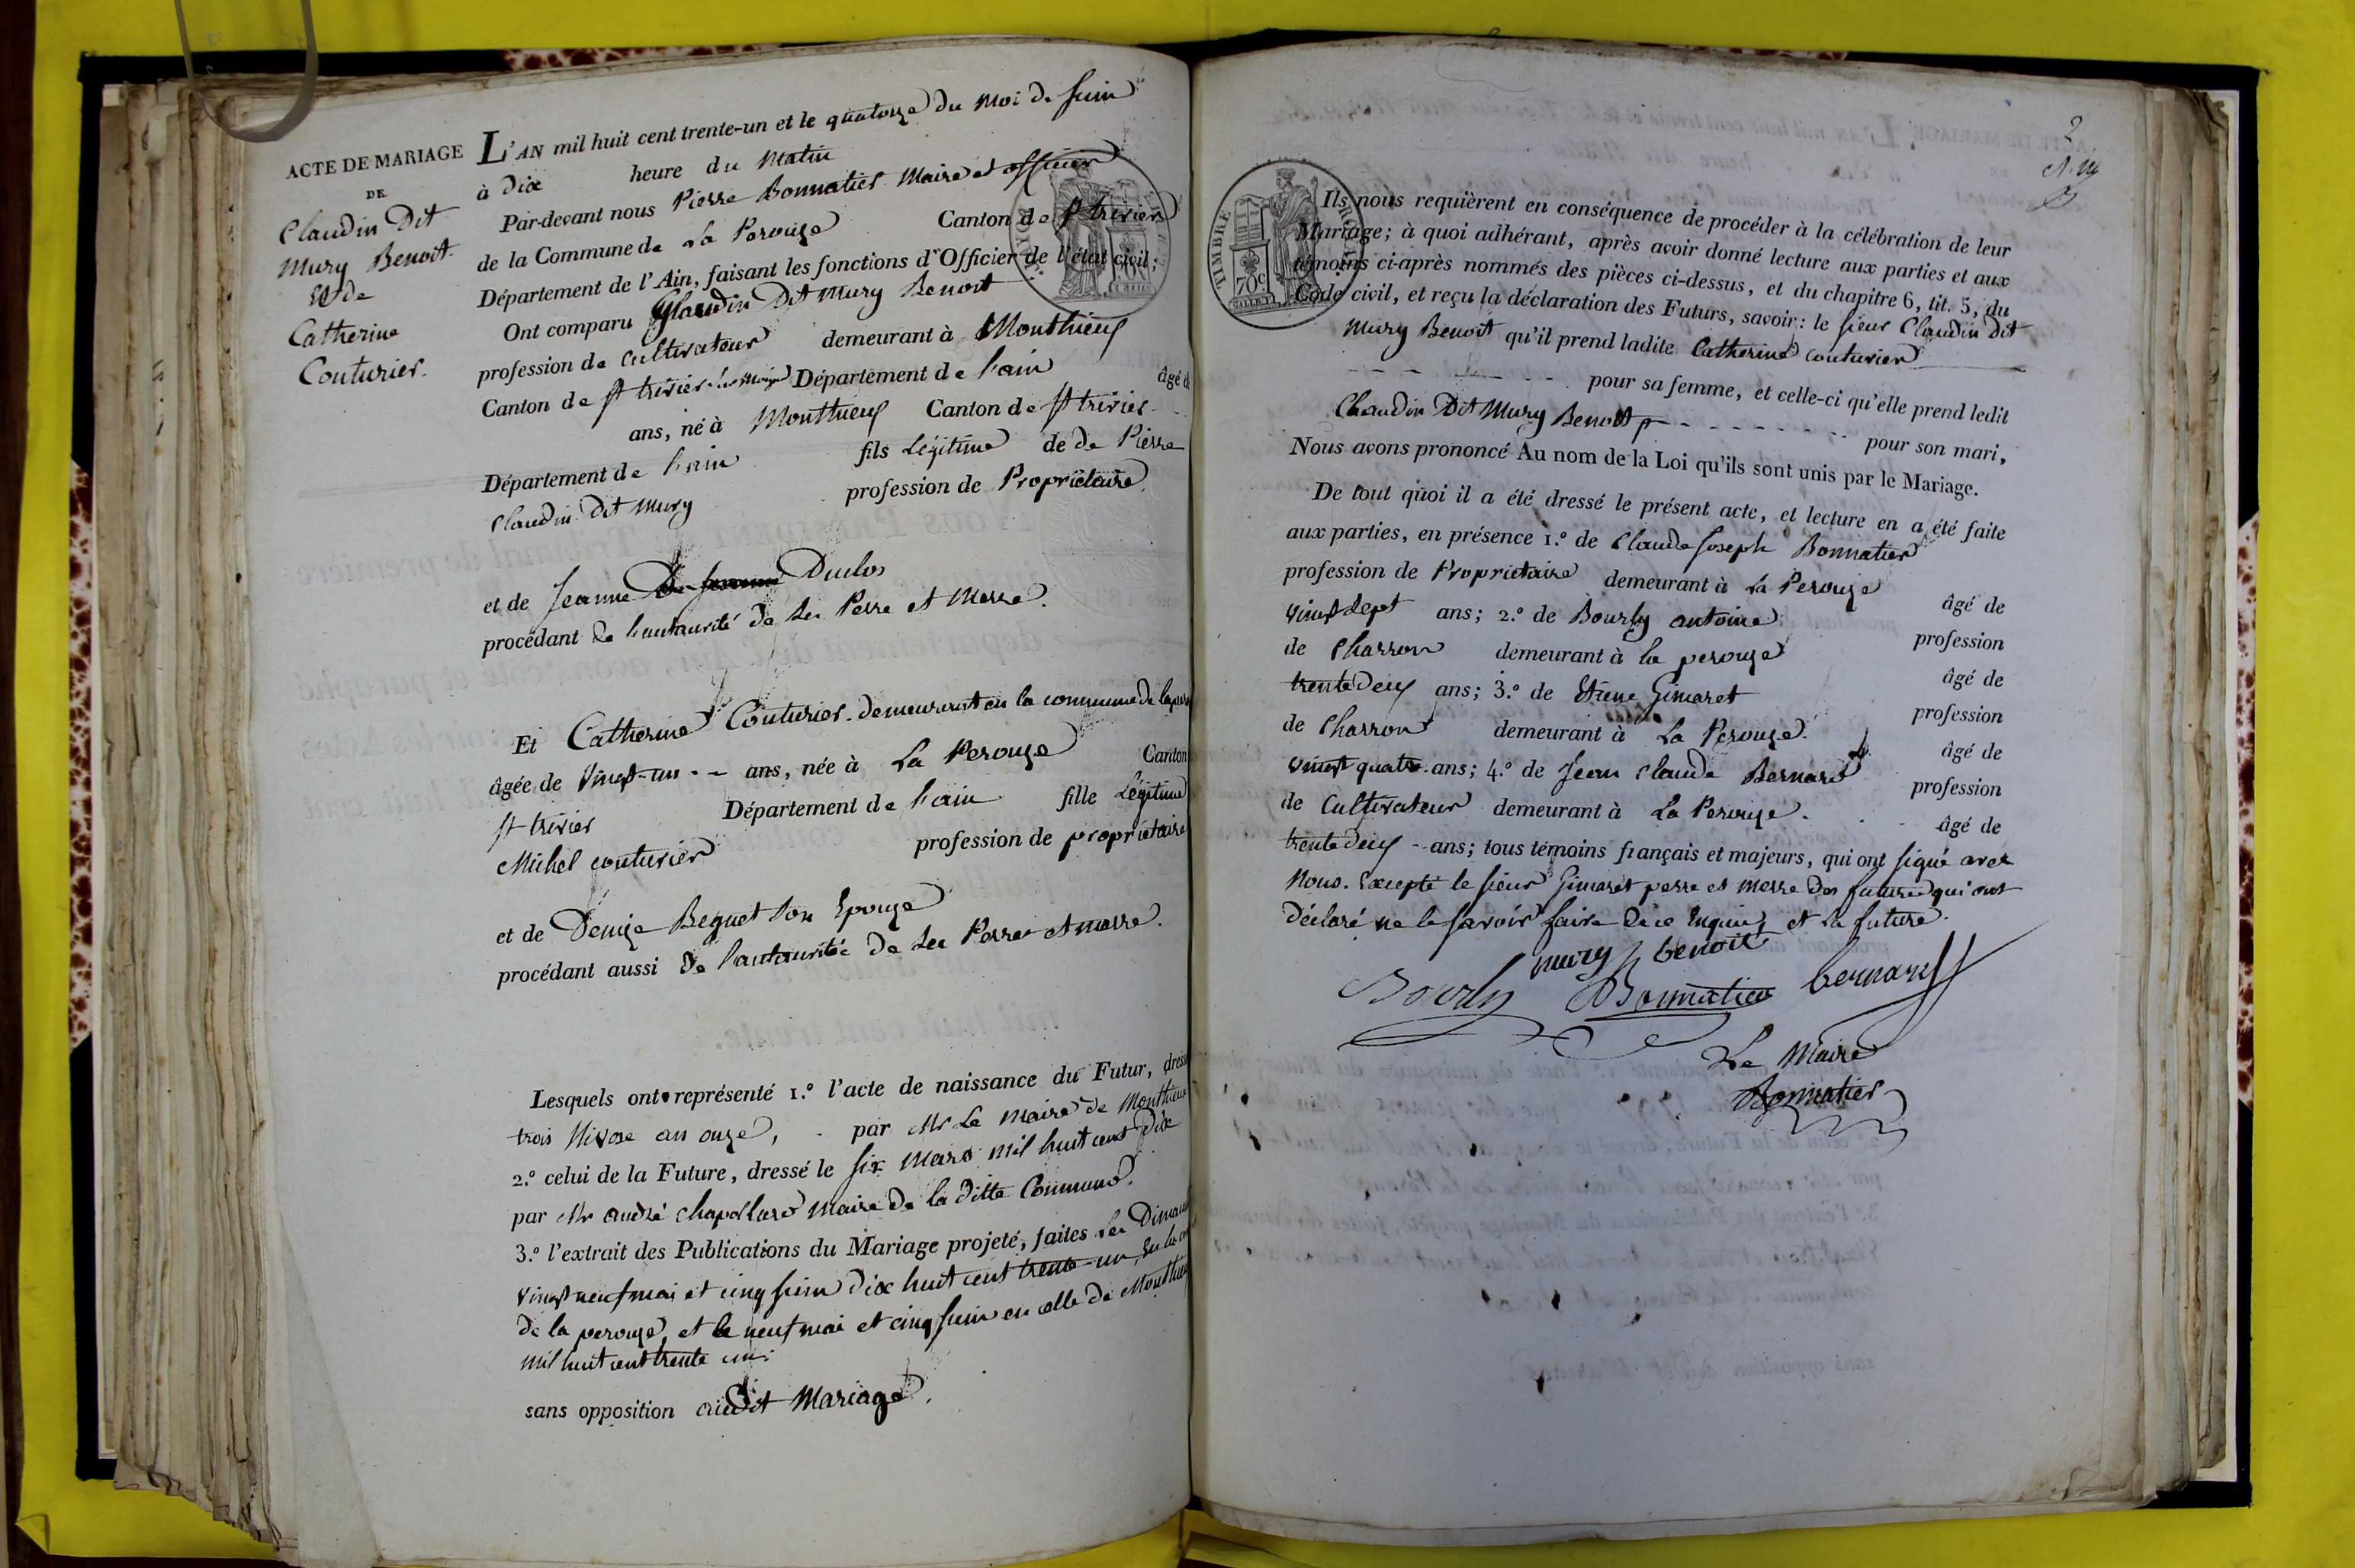 ACTE DE MARIAGE
DE
Claudin Dit
Mury Benoit
Et de
Catherine
Couturier.
L'AN mil huit cent trente-un et le quatorze du moi de Juin
à dix heure du Matin
Par-devant nous Pierre Bonnatier Maire et officier
de la Commune de La Perouze Canton de St trivier
Département de l'Ain, faisant les fonctions d'Officier de l'état civil;
Ont comparu Claudin Dit Mury Benoit
profession de Cultivateur demeurant à Monthieux
Canton de St trivier Département de l'ain âgé d
ans, né à Monthieux Canton de St trivier
Département de l'ain fils Légitime de de Pierre
Claudin Dit Mury profession de Propriétaire
et de Jeanne Duclos
procédant de l'autaurité de Ses Perre et Merre.
Et Catherine Couturier demeurant en la commune de
âgée de Vingt-un ans, née à La Perouze Canton
St trivier Département de l'ain fille Légitime
Michel couturier profession de propriétaire
et de Denize Beguet Son Epouze
procédant aussi de l'autaurité de Ses Perre et merre.
Lesquels ont représenté 1.º l'acte de naissance du Futur, dressé
trois Nivose an onze, par Mr Le Maire de Monthieux
2.º celui de la Future, dressé le six Mars mil huit cent Dix
par Mr André Chapollard Maire de la ditte Commune.
3.º l'extrait des Publications du Mariage projeté, faites les
vingt neuf mai et cinq Juin dix huit cent trente-un, En la
de la perouze, et le neuf mai et cinq Juin en celle de
mil huit cent trente un.
sans opposition audit Mariage.
TIMBRE
70c
Ils nous requièrent en conséquence de procéder à la célébration de leur
Mariage; à quoi adhérant, après avoir donné lecture aux parties et aux
témoins ci-après nommés des pièces ci-dessus, et du chapitre 6, tit. 5, du
Code civil, et reçu la déclaration des Futurs, savoir: le sieur Claudin dit
Mury Benoit qu'il prend ladite Catherine couturier
pour sa femme, et celle-ci qu'elle prend ledit
Claudin Dit Mury Benoit pour son mari,
Nous avons prononcé Au nom de la Loi qu'ils sont unis par le Mariage.
De tout quoi il a été dressé le présent acte, et lecture en a été faite
aux parties, en présence 1.º de Claude Joseph Bonnatier
profession de Propriétaire demeurant à La Perouze âgé de
vingt Sept ans; 2.º de Bourly antoine profession
de Charron demeurant à la perouze âgé de
trente deux ans; 3.º de Etiene Gimaret profession
de Charron demeurant à La Perouze. âgé de
vingt quatre ans; 4.º de Jean Claude Bernard profession
de Cultivateur demeurant à La Perouze. âgé de
trente deux ans; tous témoins français et majeurs, qui ont signé avec
Nous. Excepté le sieur Gimaret perre et merre des futures qui ont
déclaré ne le savoir faire de ce Enquis et la future.
mury benoit
Bourly Bonnatier bernard
Le Maire
Bonnatier